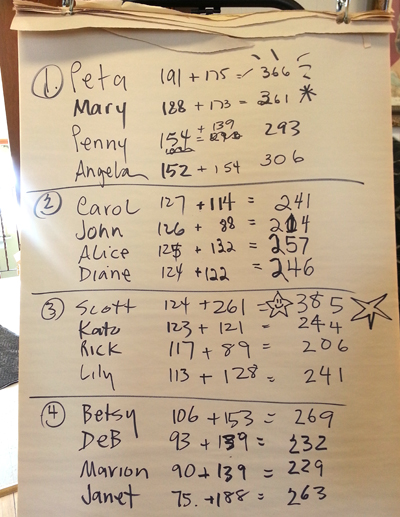 1. Peta 191 + 175 = 366
Mary 188 + 173 = 361 *
Penny 154 + 139 = 293
Angela 152 + 154 306
2 Carol 127 + 114 = 241
John 126 + 88 = 214
Alice 125 + 132 = 257
Diane 124 + 122 = 246
3 Scott 124 + 261 = 385
Kate 123 + 121 = 244
Rick 117 + 89 = 206
Lily 113 + 128 = 241
4 Betsy 106 + 153 = 269
DeB 93 + 139 = 232
Marion 90 + 139 = 229
Janet 75. + 188 = 263